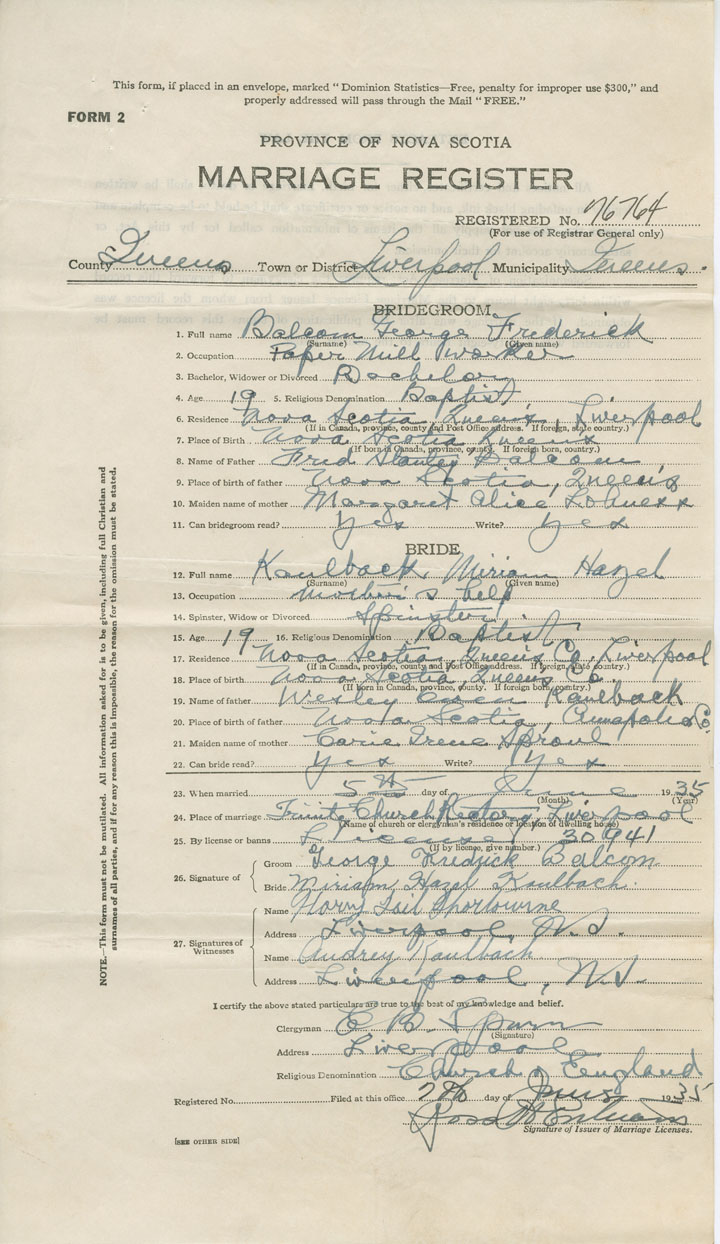 This form, if placed in an envelope, marked "Dominion Statistics—Free, penalty for improper use $300," and
properly addressed will pass through the Mail "FREE."
FORM 2
PROVINCE OF NOVA SCOTIA
MARRIAGE REGISTER
REGISTERED No. 76764
(For use of Registrar General only)
County Queens Town or District Liverpool Municipality Queens.
BRIDEGROOM
1. Full name Balcom George Frederick
(Surname) (Given name)
2. Occupation Paper Mill Worker
3. Bachelor, Widower or Divorced Bachelor
4. Age 19 5. Religious Denomination Baptist
6. Residence Nova Scotia, Queens, Liverpool
(If in Canada, province, county and Post Office address. If foreign, state country.)
7. Place of Birth Nova Scotia Queens
(If born in Canada, province, county. If foreign born, country.)
8. Name of Father Fred Stanley Balcom
9. Place of birth of father Nova Scotia, Queens
10. Maiden name of mother Margaret Alice
11. Can bridegroom read? Yes Write? Yes
BRIDE
12. Full name Kaulback Miriam Hazel
(Surname) (Given name)
13. Occupation Mother's help
14. Spinster, Widow or Divorced Spinster
15. Age 19 16. Religious Denomination Baptist
17. Residence Nova Scotia, Queens Co, Liverpool
(If in Canada, province, county and Post Office address. If foreign, state country.)
18. Place of birth Nova Scotia, Queens Co.
(If born in Canada, province, county. If foreign born, country.)
19. Name of father Wesley Owen Kaulback
20. Place of birth of father Nova Scotia, Annapolis Co.
21. Maiden name of mother Carie Irene Sproul
22. Can bride read? Yes Write? Yes
23. When married 5th day of June 1935
(Month) (Year)
24. Place of marriage Trinity Church Rectory, Liverpool
(Name of church or clergyman's residence or location of dwelling house)
25. By license or banns License 30941
(If by license, give number.)
26. Signature of
Groom George Fredrick Balcom
Bride Miriam Hazel Kaulback.
27. Signatures of Witnesses
Name
Address Liverpool, N.S.
Name Audrey Kaulback
Address Liverpool, N.S.
I certify the above stated particulars are true to the best of my knowledge and belief.
Clergyman E B. Spurr
(Signature)
Address Liverpool
Religious Denomination Church of England
Registered No. Filed at this office 7th day of June 1935
Signature of Issuer of Marriage Licenses.
[SEE OTHER SIDE]
NOTE.—This form must not be mutilated. All information asked for is to be given, including full Christian and
surnames of all parties, and if for any reason this is impossible, the reason for the omission must be stated.